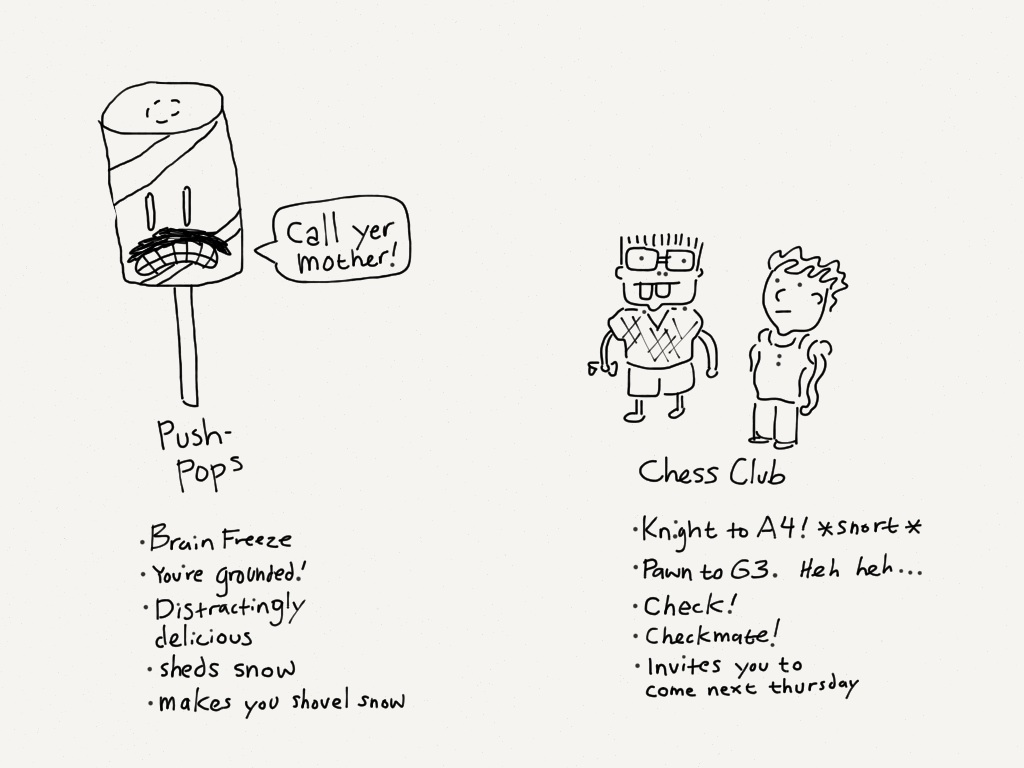 Call yer
mother!
Push-
Pops
• Brain Freeze
• You're grounded!
• Distractingly
delicious
• sheds snow
• makes you shovel snow
Chess Club
• Knight to A4! *snort*
• Pawn to G3. Heh heh...
• Check!
• Checkmate!
• Invites you to
come next thursday